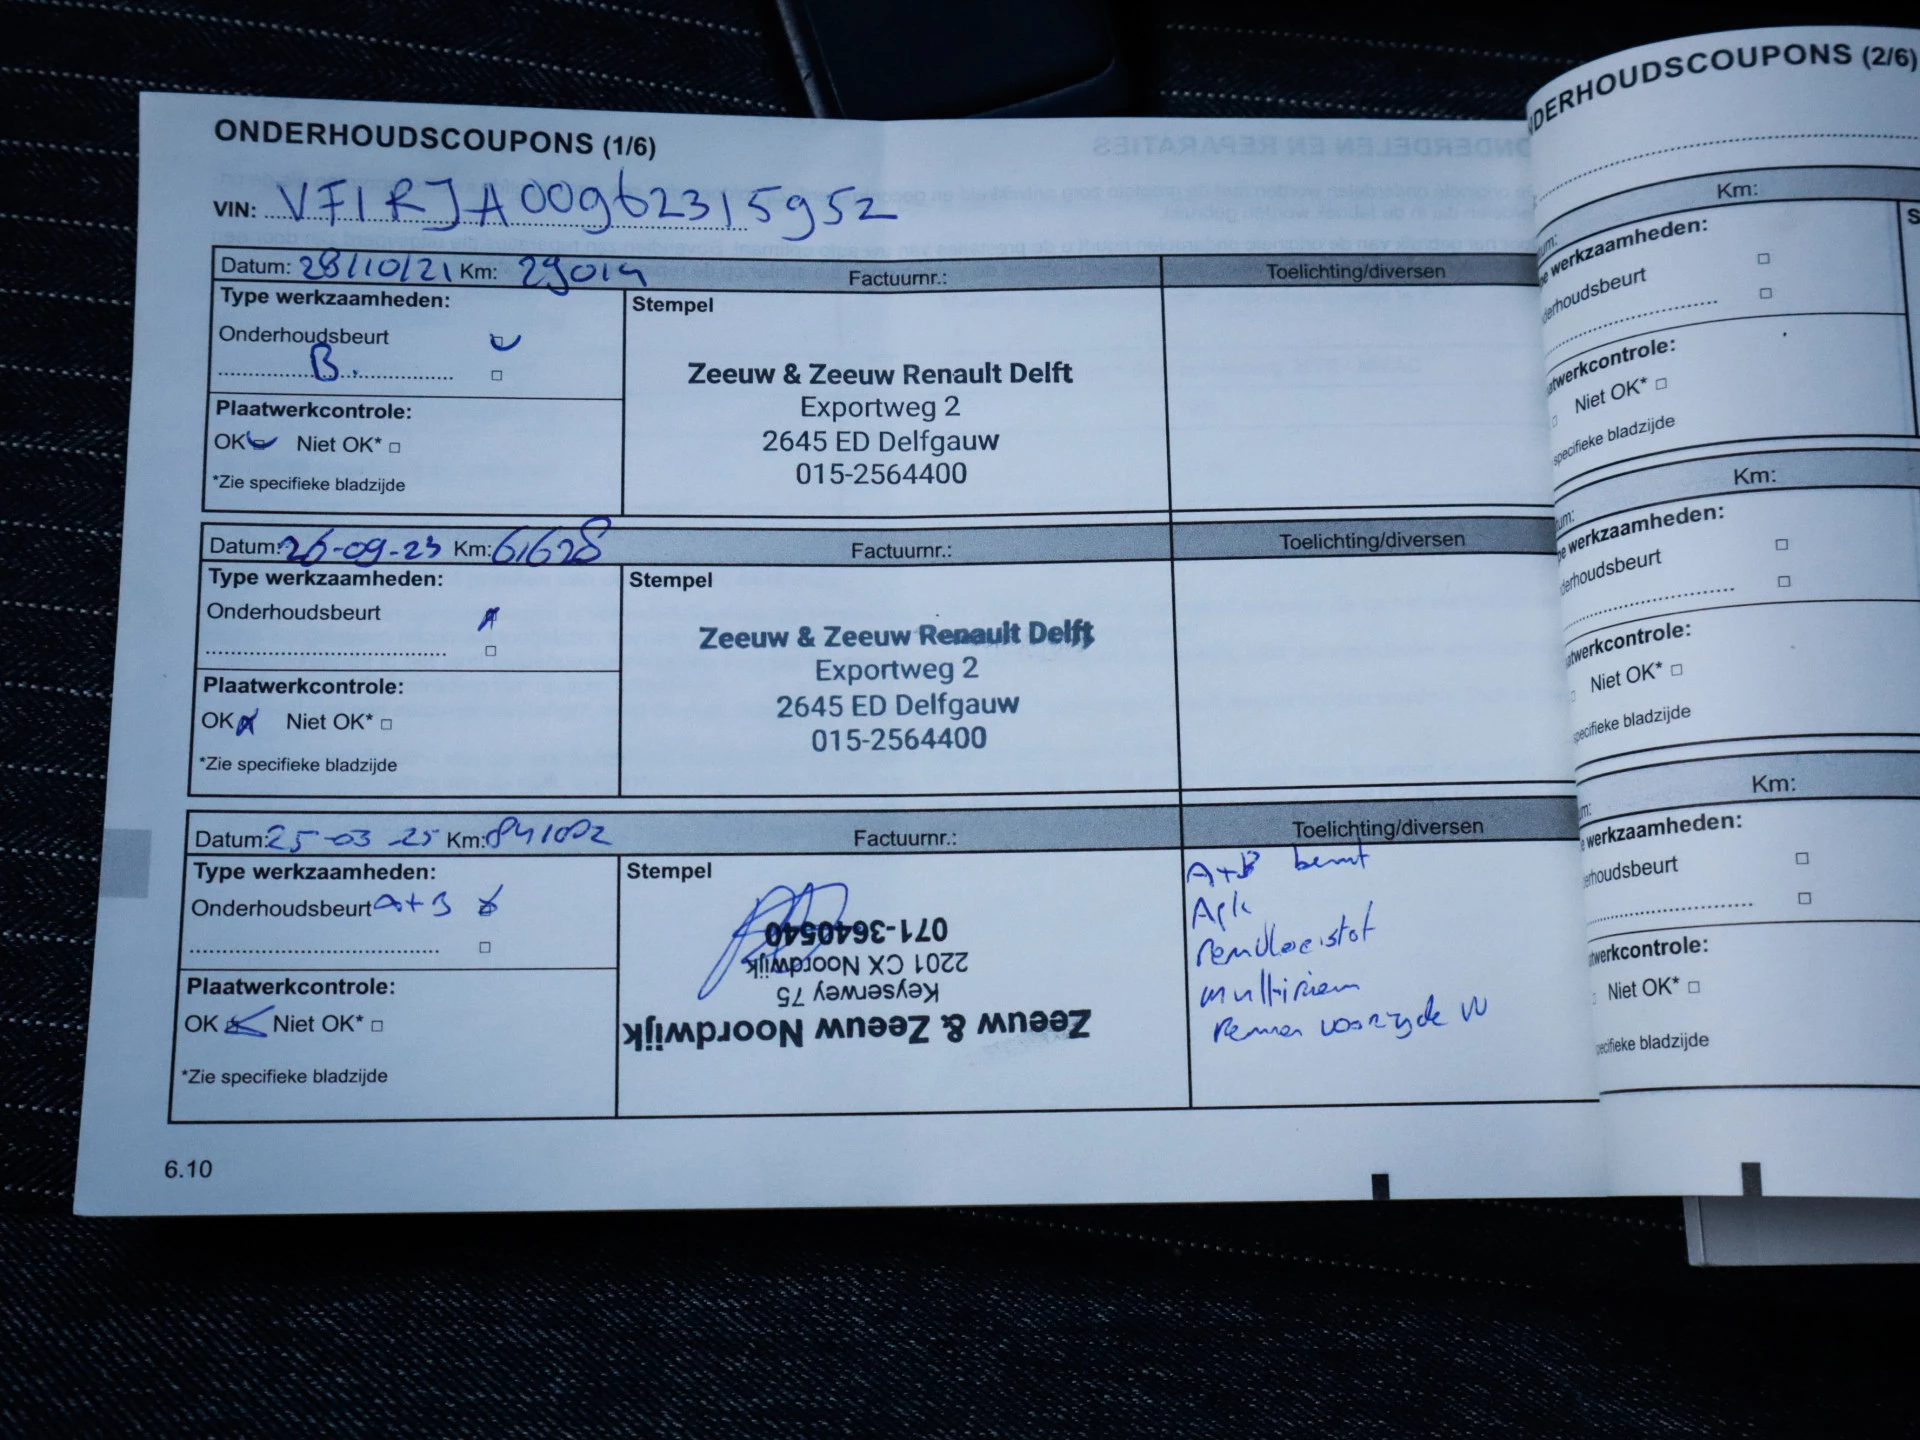 ONDERHOUDSCOUPONS (1/6)
VIN: VF1RJA00962315952
Datum: 28/10/21 Km: 29014 Factuurnr.: Toelichting/diversen
Type werkzaamheden:
Stempel
Onderhoudsbeurt
B.
Plaatwerkcontrole:
OK Niet OK*
*Zie specifieke bladzijde
Zeeuw & Zeeuw Renault Delft
Exportweg 2
2645 ED Delfgauw
015-2564400
Datum: 26-09-23 Km: 61628 Factuurnr.: Toelichting/diversen
Type werkzaamheden:
Stempel
Onderhoudsbeurt
Plaatwerkcontrole:
OK Niet OK*
*Zie specifieke bladzijde
Zeeuw & Zeeuw Renault Delft
Exportweg 2
2645 ED Delfgauw
015-2564400
Datum: 25-03-25 Km: Factuurnr.: Toelichting/diversen
Type werkzaamheden:
Stempel
Onderhoudsbeurt A+B
Plaatwerkcontrole:
OK Niet OK*
*Zie specifieke bladzijde
Zeeuw & Zeeuw Noordwijk
Keyserwey 75
2201 CX Noordwijk
071-3640540
A+B beurt
Apk
remvloeistof
multiriem
remmen voorzijde VV
6.10
NDERHOUDSCOUPONS (2/6)
Km:
werkzaamheden:
Niet OK*
specifieke bladzijde
Km:
werkzaamheden:
Niet OK*
specifieke bladzijde
Km:
werkzaamheden:
Niet OK*